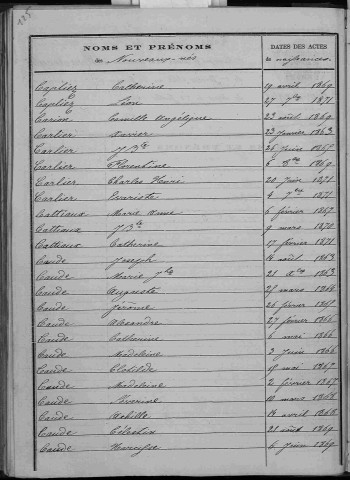 NOMS ET PRÉNOMS DATES DES ACTES
des Nouveaux-nés de naissances.
Capliez Catherine 19 avril 1869
Capliez Léon 27 7bre 1871
Carion Camille Angélique 23 août 1869
Carlier Xavier 23 janvier 1863
Carlier J Bte 26 juin 1867
Carlier Florentine 6 Xbre 1869
Carlier Charles Henri 20 juin 1871
Carlier Evariste 4 7bre 1871
Cattiaux Marie Anne 6 février 1867
Cattiaux J Bte 9 mars 1870
Cattiaux Catherine 17 février 1871
Caude Joseph 14 août 1863
Caude Marie 21 Xbre 1863
Caude Auguste 25 mars 1864
Caude Jérôme 26 février 1865
Caude Alexandre 27 février 1866
Caude Catherine 6 mai 1866
Caude Madeleine 3 juin 1866
Caude Clotilde mai 1867
Caude Madeleine 2 février 1867
Caude Séverine 10 mars 1868
Caude Achille 14 avril 1868
Caude Célestin 21 août 1869
Caude 6 juin 1869